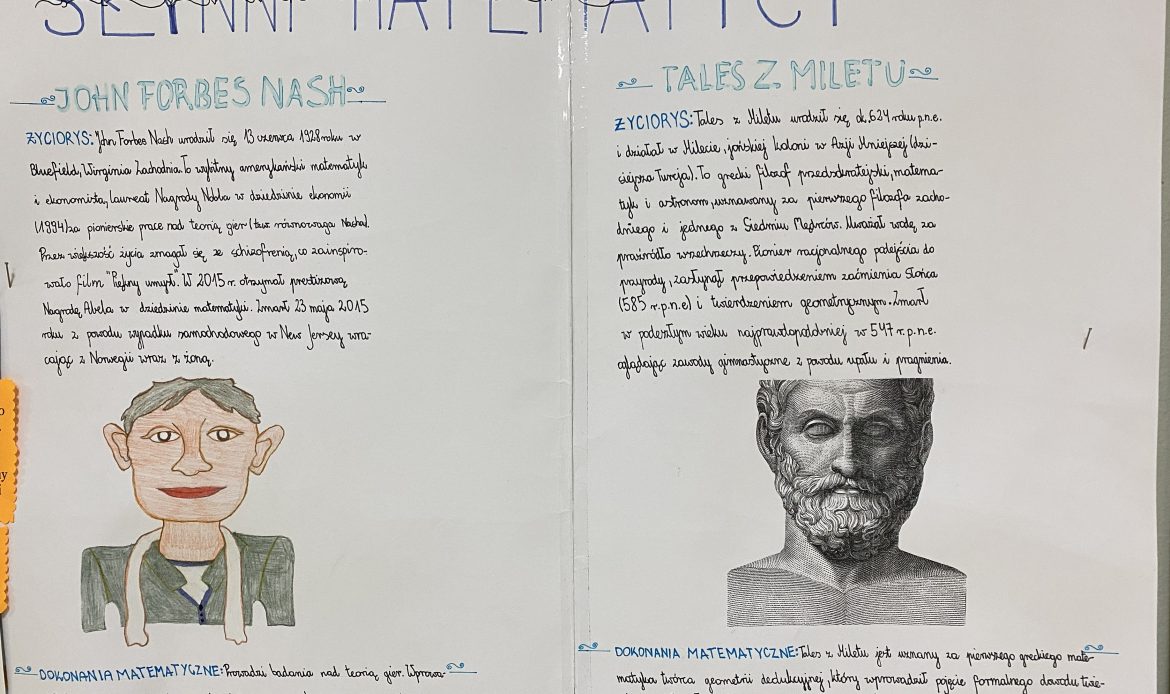 SŁYNNI MATEMATYCY
JOHN FORBES NASH
ŻYCIORYS: John Forbes Nash urodził się 13 czerwca 1928 roku w
Bluefield, Wirginia Zachodnia. To wybitny amerykański matematyk
i ekonomista, laureat Nagrody Nobla w dziedzinie ekonomii
(1994) za pionierskie prace nad teorią gier (tzw. równowaga Nasha).
Przez większość życia zmagał się ze schizofrenią, co zainspiro-
wało film "Piękny umysł". W 2015 r. otrzymał prestiżową
Nagrodę Abela w dziedzinie matematyki. Zmarł 23 maja 2015
roku z powodu wypadku samochodowego w New Jersey wra-
cając z Norwegii wraz z żoną.
DOKONANIA MATEMATYCZNE: Prowadzi badania nad teorią gier. Wprowa-
TALES Z MILETU
ŻYCIORYS: Tales z Miletu urodził się ok. 624 roku p.n.e.
i działał w Milecie, jońskiej koloni w Azji Mniejszej (dzi-
siejsza Turcja). To grecki filozof przedsokratejski, matema-
tyk i astronom, uznawany za pierwszego filozofa zacho-
dniego i jednego z Siedmiu Mędrców. Uważał wodę za
praźródło wszechrzeczy. Pionier racjonalnego podejścia do
przyrody, zasłynął przepowiedzeniem zaćmienia Słońca
(585 r.p.n.e) i twierdzeniem geometrycznym. Zmarł
w podeszłym wieku najprawdopodobniej w 547 r.p.n.e.
oglądając zawody gimnastyczne z powodu upału i pragnienia.
DOKONANIA MATEMATYCZNE: Tales z Miletu jest uznany za pierwszego greckiego mate-
matyka twórca geometrii dedukcyjnej, który wprowadził pojęcie formalnego dowodu twie-